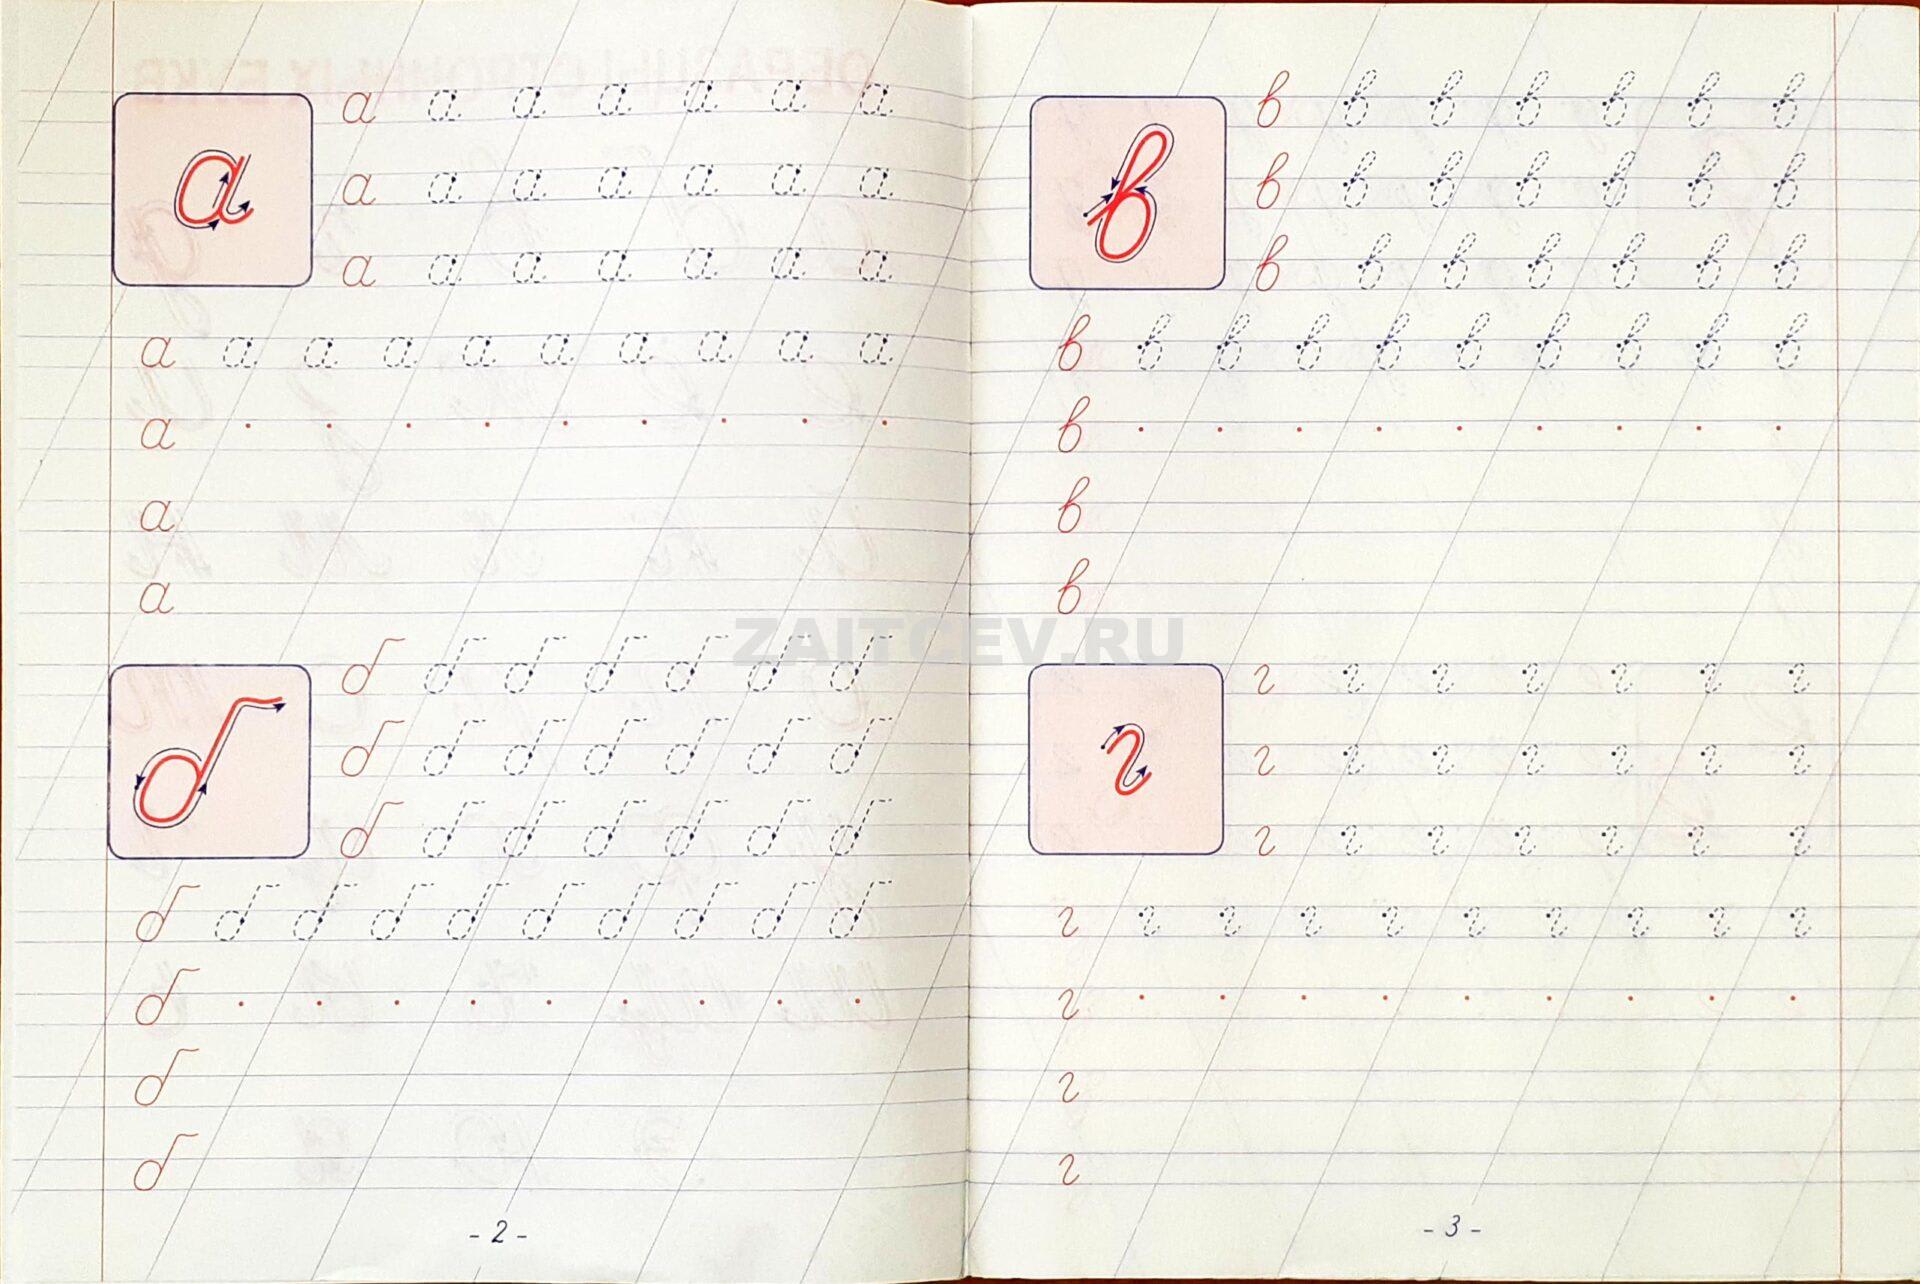 а
а а а а а а а
а а а а а а а
а а а а а а а
а а а а а а а а а а
а
а
а
б
б б б б б б б
б б б б б б б
б б б б б б б
б б б б б б б б б б
б
б
б
- 2 -
в
в в в в в в в
в в в в в в в
в в в в в в в
в в в в в в в в в в
в
в
в
г
г г г г г г г
г г г г г г г
г г г г г г г
г г г г г г г г г г
г
г
г
- 3 -
ZAITCEV.RU